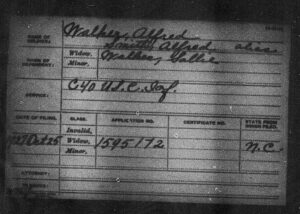 NAME OF SOLDIER:
Walker, Alfred
Smith, Alfred, alias
NAME OF DEPENDENT:
Widow,
Minor,
Walker, Sallie
SERVICE:
C. 40 U.S.C. Inf.
DATE OF FILING.
CLASS.
APPLICATION NO.
CERTIFICATE NO.
STATE FROM WHICH FILED.
Invalid,
Oct 25
Widow,
1595172
N.C.
Minor,
ATTORNEY: